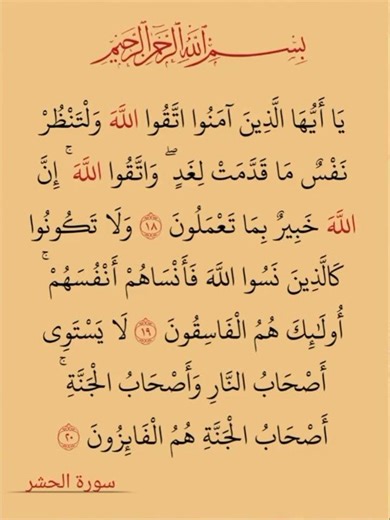 بسم الله الرحمن الرحيم
يَا أَيُّهَا الَّذِينَ آمَنُوا اتَّقُوا اللَّهَ وَلْتَنْظُرْ
نَفْسٌ مَا قَدَّمَتْ لِغَدٍ ۖ وَاتَّقُوا اللَّهَ ۚ إِنَّ
اللَّهَ خَبِيرٌ بِمَا تَعْمَلُونَ ﴿١٨﴾ وَلَا تَكُونُوا
كَالَّذِينَ نَسُوا اللَّهَ فَأَنْسَاهُمْ أَنْفُسَهُمْ ۚ
أُولَٰئِكَ هُمُ الْفَاسِقُونَ ﴿١٩﴾ لَا يَسْتَوِي
أَصْحَابُ النَّارِ وَأَصْحَابُ الْجَنَّةِ ۚ
أَصْحَابُ الْجَنَّةِ هُمُ الْفَائِزُونَ ﴿٢٠﴾
سورة الحشر